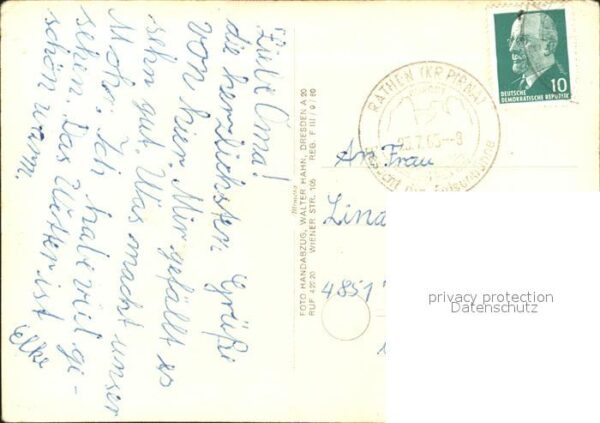 Liebe Oma!
die herzlichsten Grüße
von hier. Mir gefällt es
sehr gut. Was macht unser
Mohr. Ich habe viel ge-
sehen. Das Wetter ist
schön warm.
Elke
FOTO HANDABZUG, WALTER HAHN, DRESDEN A 20
RUF 4 20 20 WIENER STR. 105 REG. F III / 9 / 60
RATHEN (KR PIRNA)
25.7.65--9
Besucht die Felsenbühne
10
DEUTSCHE
DEMOKRATISCHE REPUBLIK
An Frau
Lina
4851
privacy protection
Datenschutz